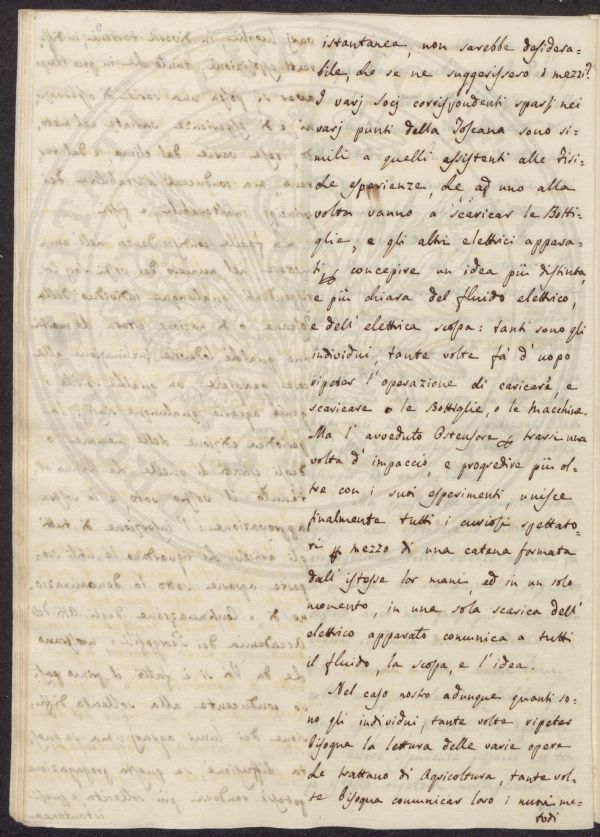 istantanea, non sarebbe desidera-
bile, che se ne suggerissero i mezzi?
I varj Socj corrispondenti sparsi nei
varj punti della Toscana sono si-
mili a quelli assistenti alle Fisi-
che esperienze, che ad uno alla
volta vanno a scaricar le Botti-
glie, e gli altri elettrici appara-
ti concepire un idea più distinta,
e più chiara del fluido elettrico,
e dell' elettrica scossa: tanti sono gli
individui, tante volte fà d' uopo
ripeter l' operazione di caricare, e
scaricare o le Bottiglie, o le Macchine.
Ma l' avveduto Ostensore trarsi una
volta d' impaccio, e progredire più ol-
tre con i suoi esperimenti, unisce
finalmente tutti i curiosi spettato-
ri mezzo di una catena formata
dall' istesse lor mani, ed in un solo
momento, in una sola scarica dell'
elettrico apparato comunica a tutti
il fluido, la scossa, e l' idea.
Nel caso nostro adunque quanti so-
no gli individui, tante volte ripeter
bisogna la lettura delle varie opere
che trattano di Agricoltura, tante vol-
te bisogna comunicar loro i nuovi me-
todi